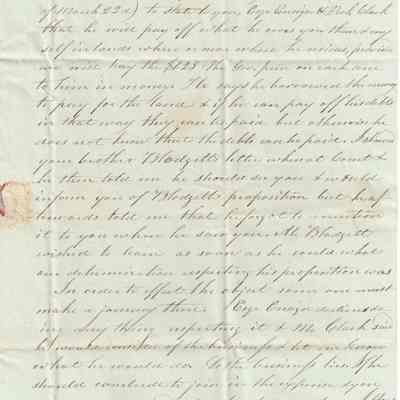 of March 22d) to state to you, Esqr & H. Clark
that he will pay off what he owes you them & my
self in lands where or near where he resides, provided
we will pay the $125 the per on each one
to him in money. He says he borrowed the money
to pay for the land & if he can pay off his debts
in that way they can be paid but otherwise he
does not know that the debts can be paid. I showed
your brother Blodgett's letter when at Court &
he then told me he should see you & would
inform you of Blodgett's proposition but he af
terwards told me that he forgot to mention
it to you when he saw you. Mr Blodgett
wished to learn as soon as he could what
our determination respecting his proposition was
In order to effect the object some one must
make a journey there. Esqr declines do
ing any thing respecting it & Mr Clark said
he would consider of the business & let me know
what he would do. In the business
should conclude to join in the expense & you